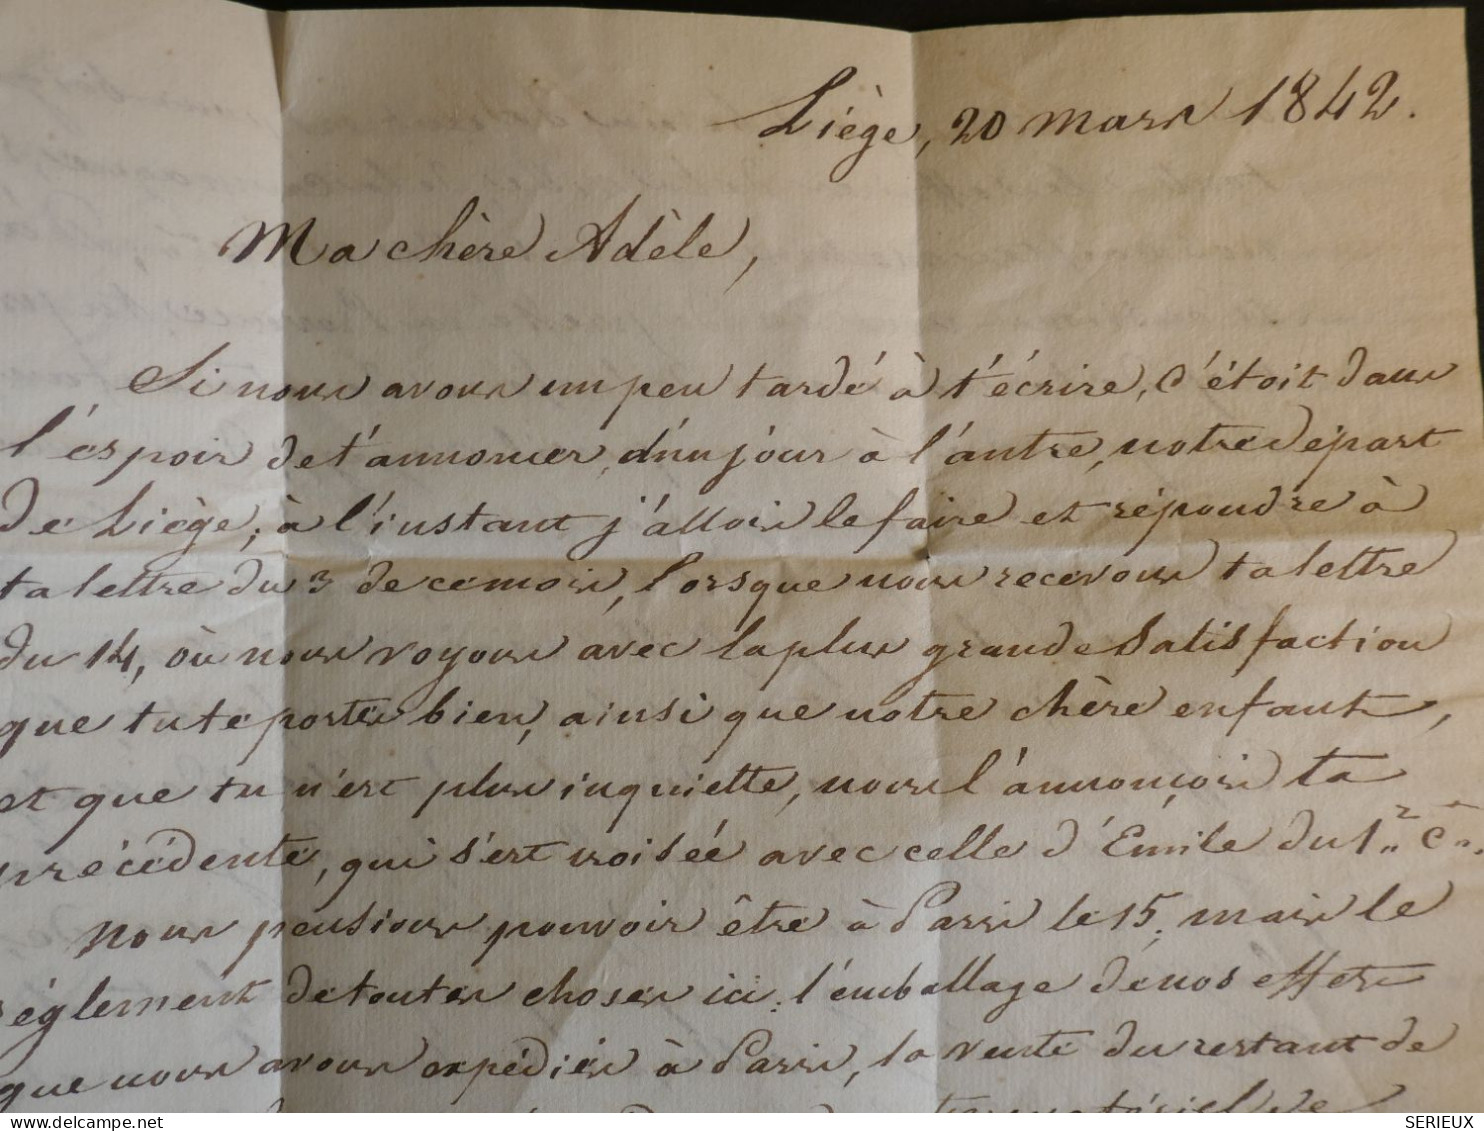 Liège, 20 Mars 1842.
Ma chère Adèle,
Si nous avons un peu tardé à t'écrire, c'étoit dans
l'espoir de t'annoncer, d'un jour à l'autre, notre départ
de Liège; à l'instant j'allois le faire et répondre à
ta lettre du 3 de ce mois, lorsque nous recevons ta lettre
du 14, où nous voyons avec la plus grande satisfaction
que tu te portes bien, ainsi que notre chère enfant,
et que tu n'es plus inquiette, nous l'annonçois ta
précédente, qui s'est croisée avec celle d'Emile du 1er ct.
Nous pensions pouvoir être à Paris le 15, mais le
réglement de toutes choses ici: l'emballage de nos effets
que nous avons expédiés à Paris, la vente du restant de
matériel de
SERIEUX